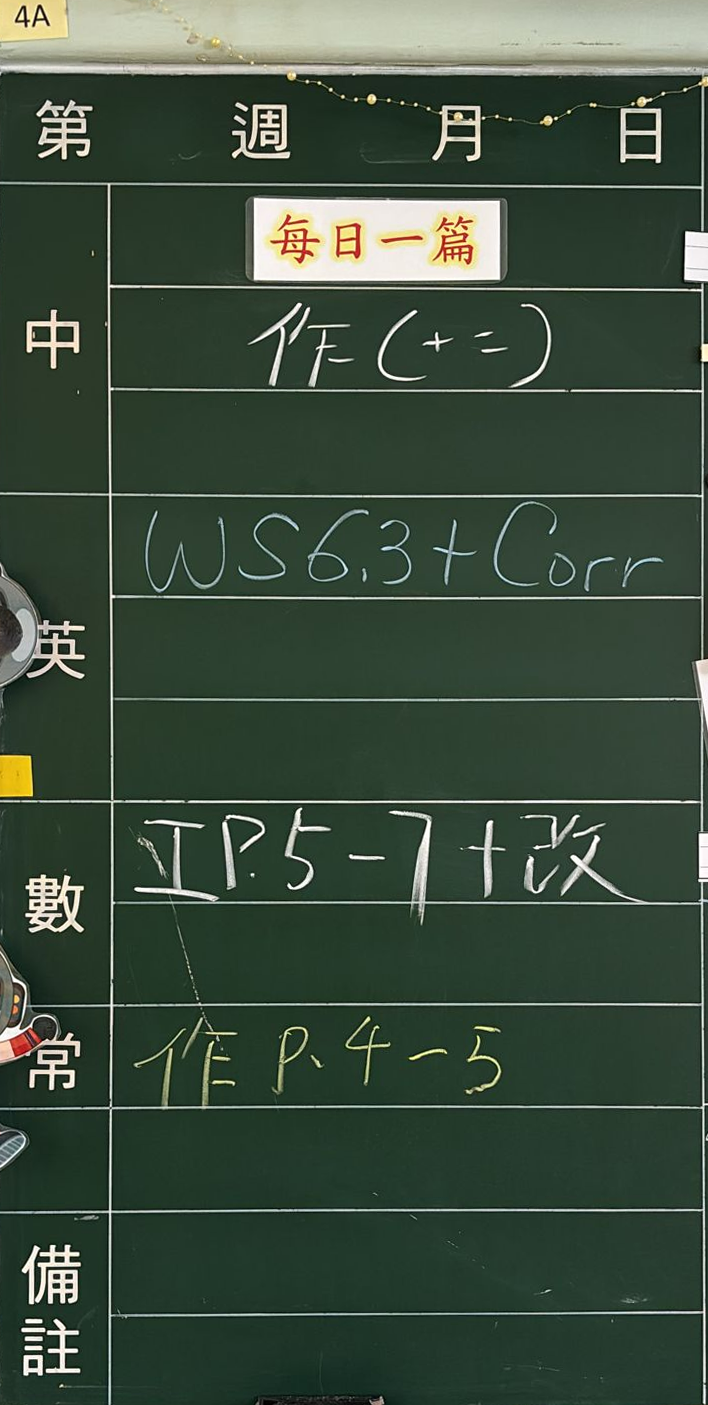 4A
第 週 月 日
每日一篇
中
作(十二)
WS6.3+Corr
英
工P.5-7+改
數
常 作 P.4-5
備註